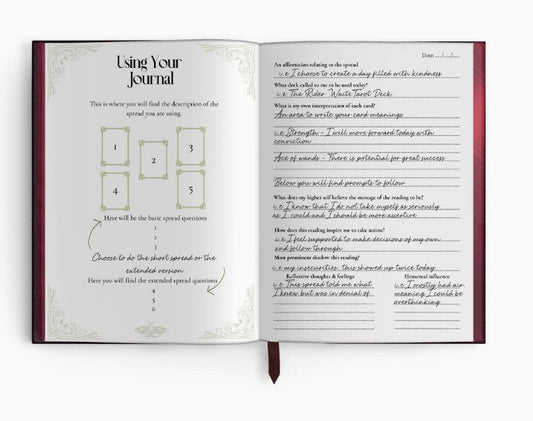 Using Your
Journal
This is where you will find the description of the
spread you are using.
1
2
3
4
5
Here will be the basic spread questions
1
2
3
Choose to do the short spread or the
extended version
Here you will find the extended spread questions
4
5
6
Date
An affirmation relating to the spread
i.e I choose to create a day filled with kindness
What deck called to me to be used today?
i.e The Rider Waite Tarot Deck
What is my own interpretation of each card?
An area to write your card meanings
i.e Strength - I will move forward today with
conviction
Ace of wands - There is potential for great success
Below you will find prompts to follow
What does my higher self believe the message of the reading to be?
i.e I know that I do not take myself as seriously
as I could and I should be more assertive
How does this reading inspire me to take action?
i.e I feel supported to make decisions of my own
and follow through
Most prominent shadow this reading?
i.e my insecurities. this showed up twice today
Reflective thoughts & feelings
i.e This spread told me what
I knew but was in denial of
Elemental influence
i.e I mostly had air
meaning I could be
overthinking